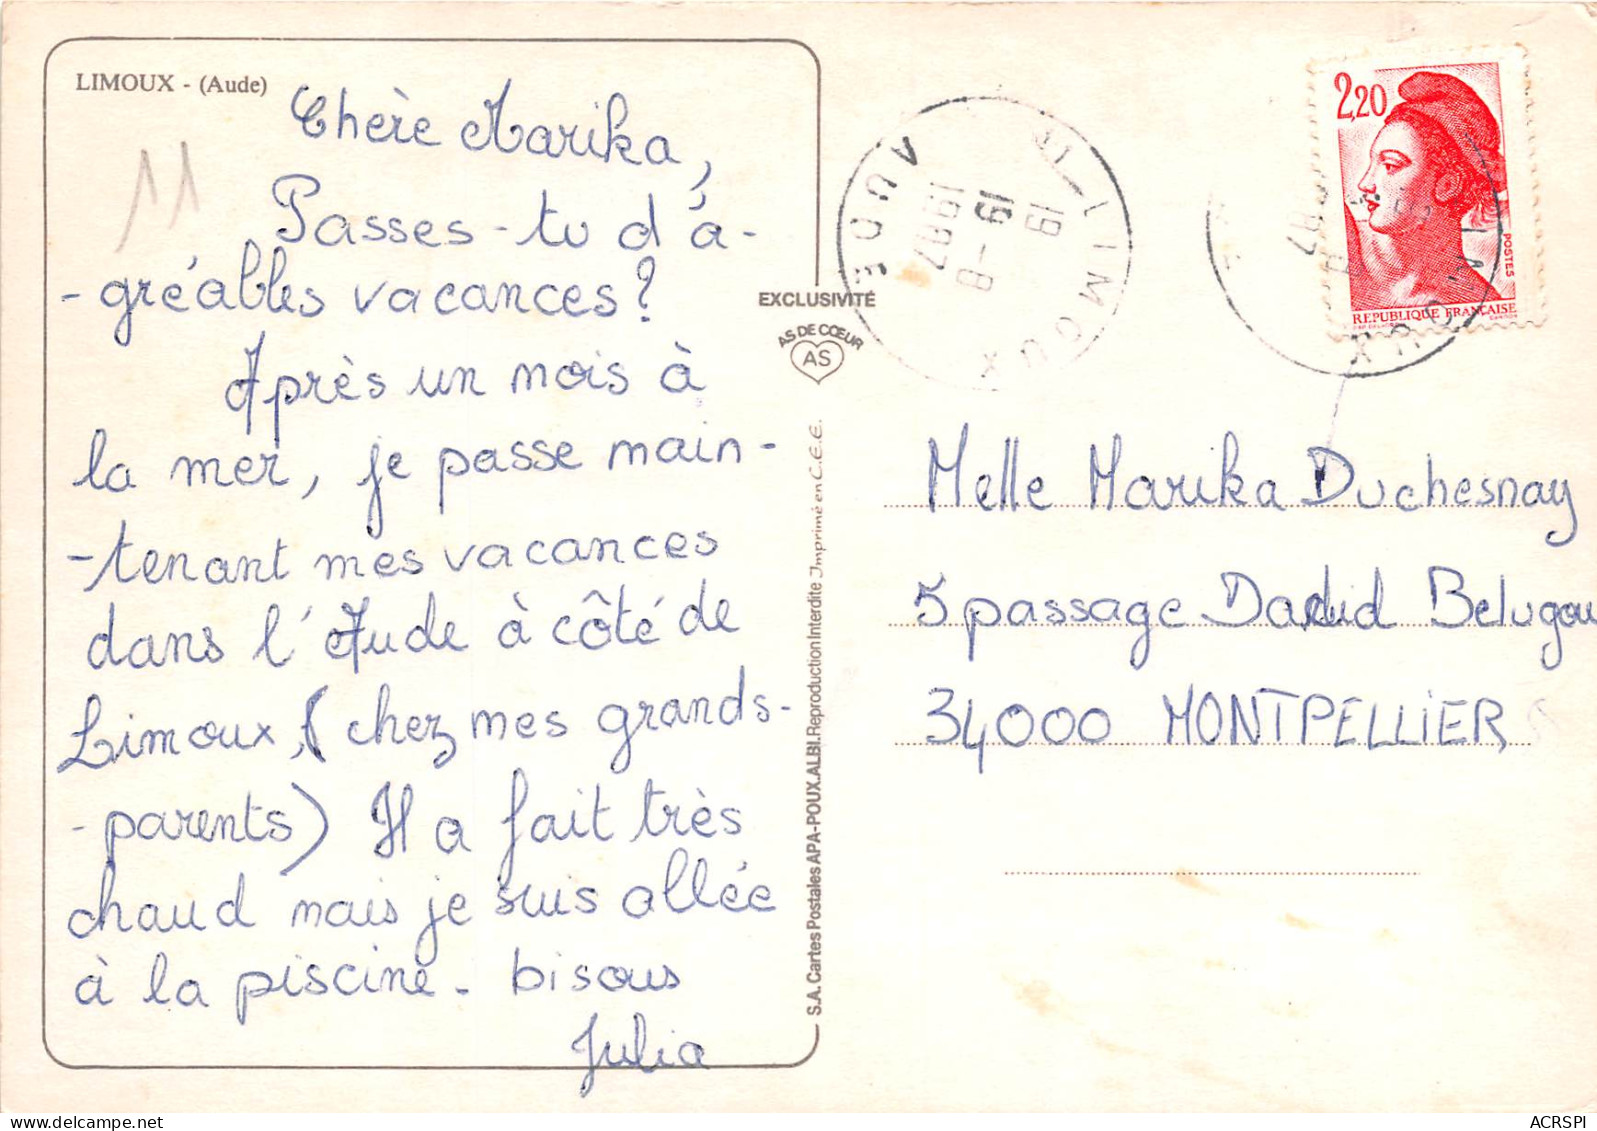 LIMOUX - (Aude)
11
Chère Marika,
Passes-tu d'a-
-gréables vacances?
Après un mois à
la mer, je passe main-
-tenant mes vacances
dans l'Aude à côté de
Limoux, (chez mes grands-
-parents) Il a fait très
chaud mais je suis allée
à la piscine. bisous
Julia
EXCLUSIVITÉ
AS DE CŒUR
AS
S.A. Cartes Postales APA-POUX. ALBI. Reproduction Interdite Imprimé en C.E.E.
11 LIMOUX
19 H
19 - 8
1987
AUDE
LIMOUX
8
87
2,20
POSTES
REPUBLIQUE FRANÇAISE
Melle Marika Duchesnay
5 passage David Belugou
34000 MONTPELLIER
ACRSPI